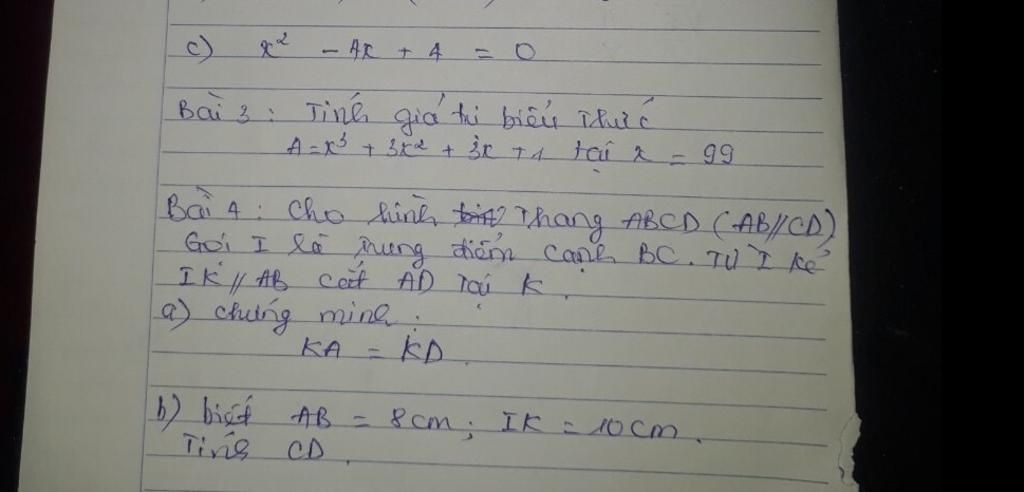 c) x² - 4x + 4 = 0
Bài 3 : Tính giá trị biểu thức
A = x³ + 3x² + 3x + 1 tại x = 99
Bài 4 : Cho hình thang ABCD (AB//CD)
Gọi I là trung điểm cạnh BC. Từ I kẻ
IK // AB cắt AD tại K.
a) chứng minh :
KA = KD.
b) biết AB = 8cm ; IK = 10cm.
Tính CD.